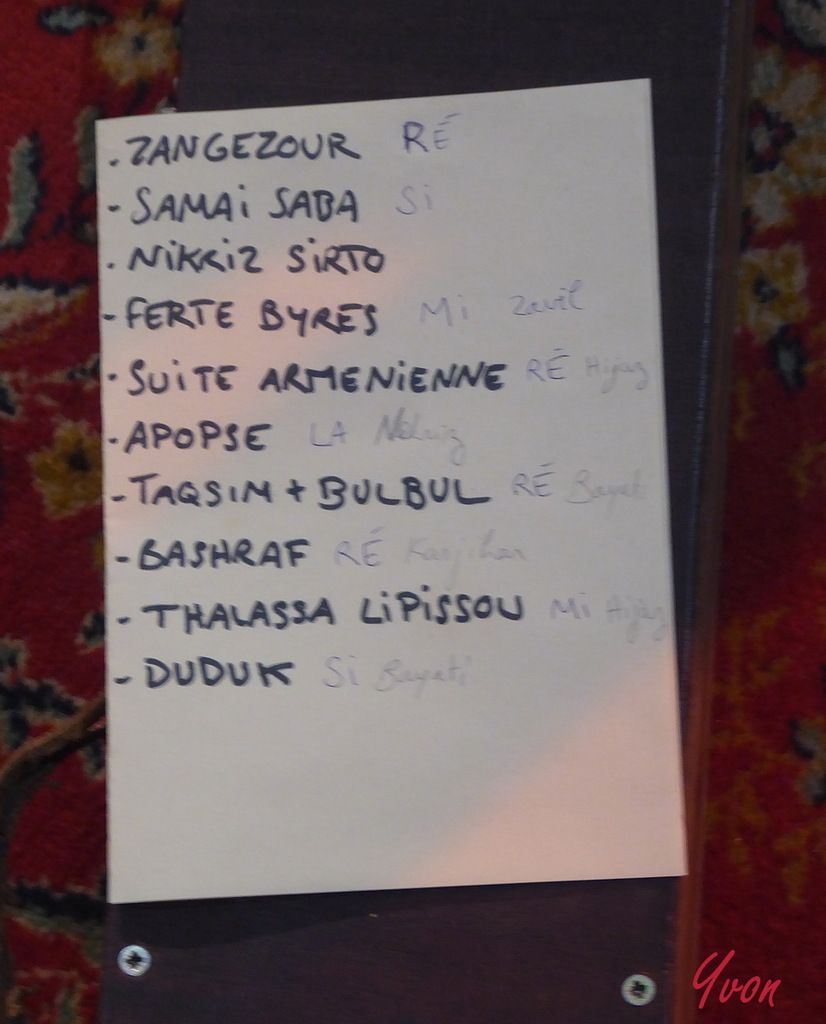 . ZANGEZOUR RÉ
- SAMAi SABA Si
. NiKRiZ SiRTO
- FERTE BYRES Mi Zavil
. SUiTE ARMENiENNE RÉ Hijaz
- APOPSE LA Nekriz
- TAQSiM + BULBUL RÉ Bayati
- BASHRAF RÉ
- THALASSA LiPiSSOU Mi Hijaz
- DUDUK Si Bayati
Yvon